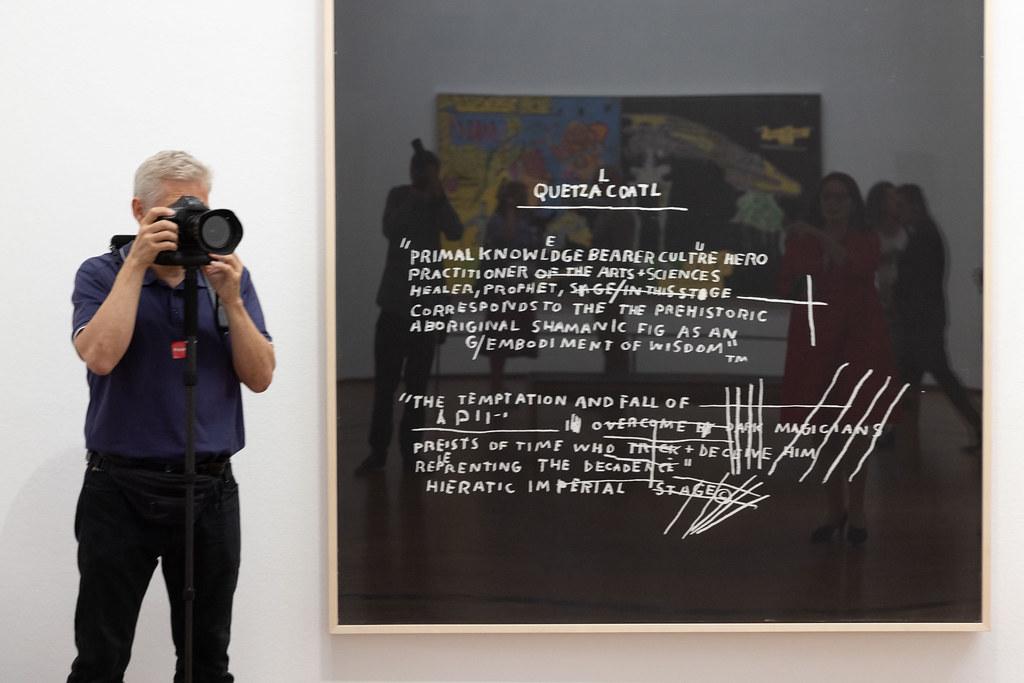 QUETZALCOATL
"PRIMAL KNOWLEDGE BEARER CULTÜRE HERO
PRACTITIONER OF THE ARTS + SCIENCES
HEALER, PROPHET, STAGE/IN THIS STAGE
CORRESPONDS TO THE THE PREHISTORIC
ABORIGINAL SHAMANIC FIG AS AN
G/EMBODIMENT OF WISDOM"™
"THE TEMPTATION AND FALL OF
OVERCOME BY DARK MAGICIANS
PREISTS OF TIME WHO TRICK + DECEIVE HIM
REPRENTING THE DECADENCE"
HIERATIC IMPERIAL STAGE©